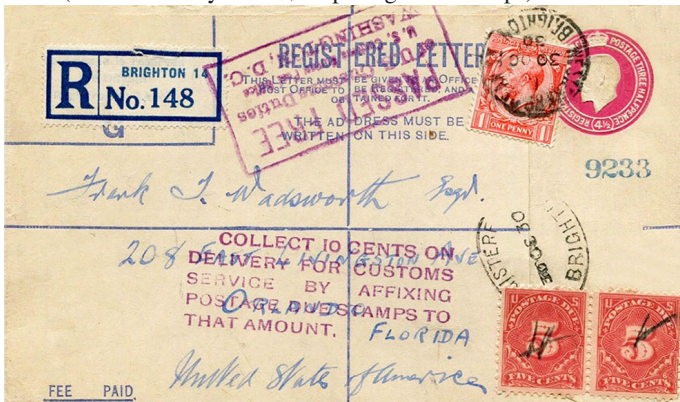 REGISTERED LETTER
THIS LETTER MUST BE GIVEN TO AN OFFICER
POST OFFICE TO BE REGISTERED, AND A
OBTAINED FOR IT.
THE ADDRESS MUST BE
WRITTEN ON THIS SIDE.
BRIGHTON 14
R No. 148
FREE
Duties
U.S.
WASHINGTON, D.C.
BRIGHTON
ONE PENNY
POSTAGE THREE HALFPENCE
REGISTRATION
(4½)
9233
Frank T. Wadsworth Esqr.
208 East Livingston Ave
Orlando
FLORIDA
United States of America
COLLECT 10 CENTS ON
DELIVERY FOR CUSTOMS
SERVICE BY AFFIXING
POSTAGE DUE STAMPS TO
THAT AMOUNT.
BRIGHT
30
POSTAGE DUE
5
FIVE CENTS
POSTAGE DUE
5
FIVE CENTS
FEE PAID.